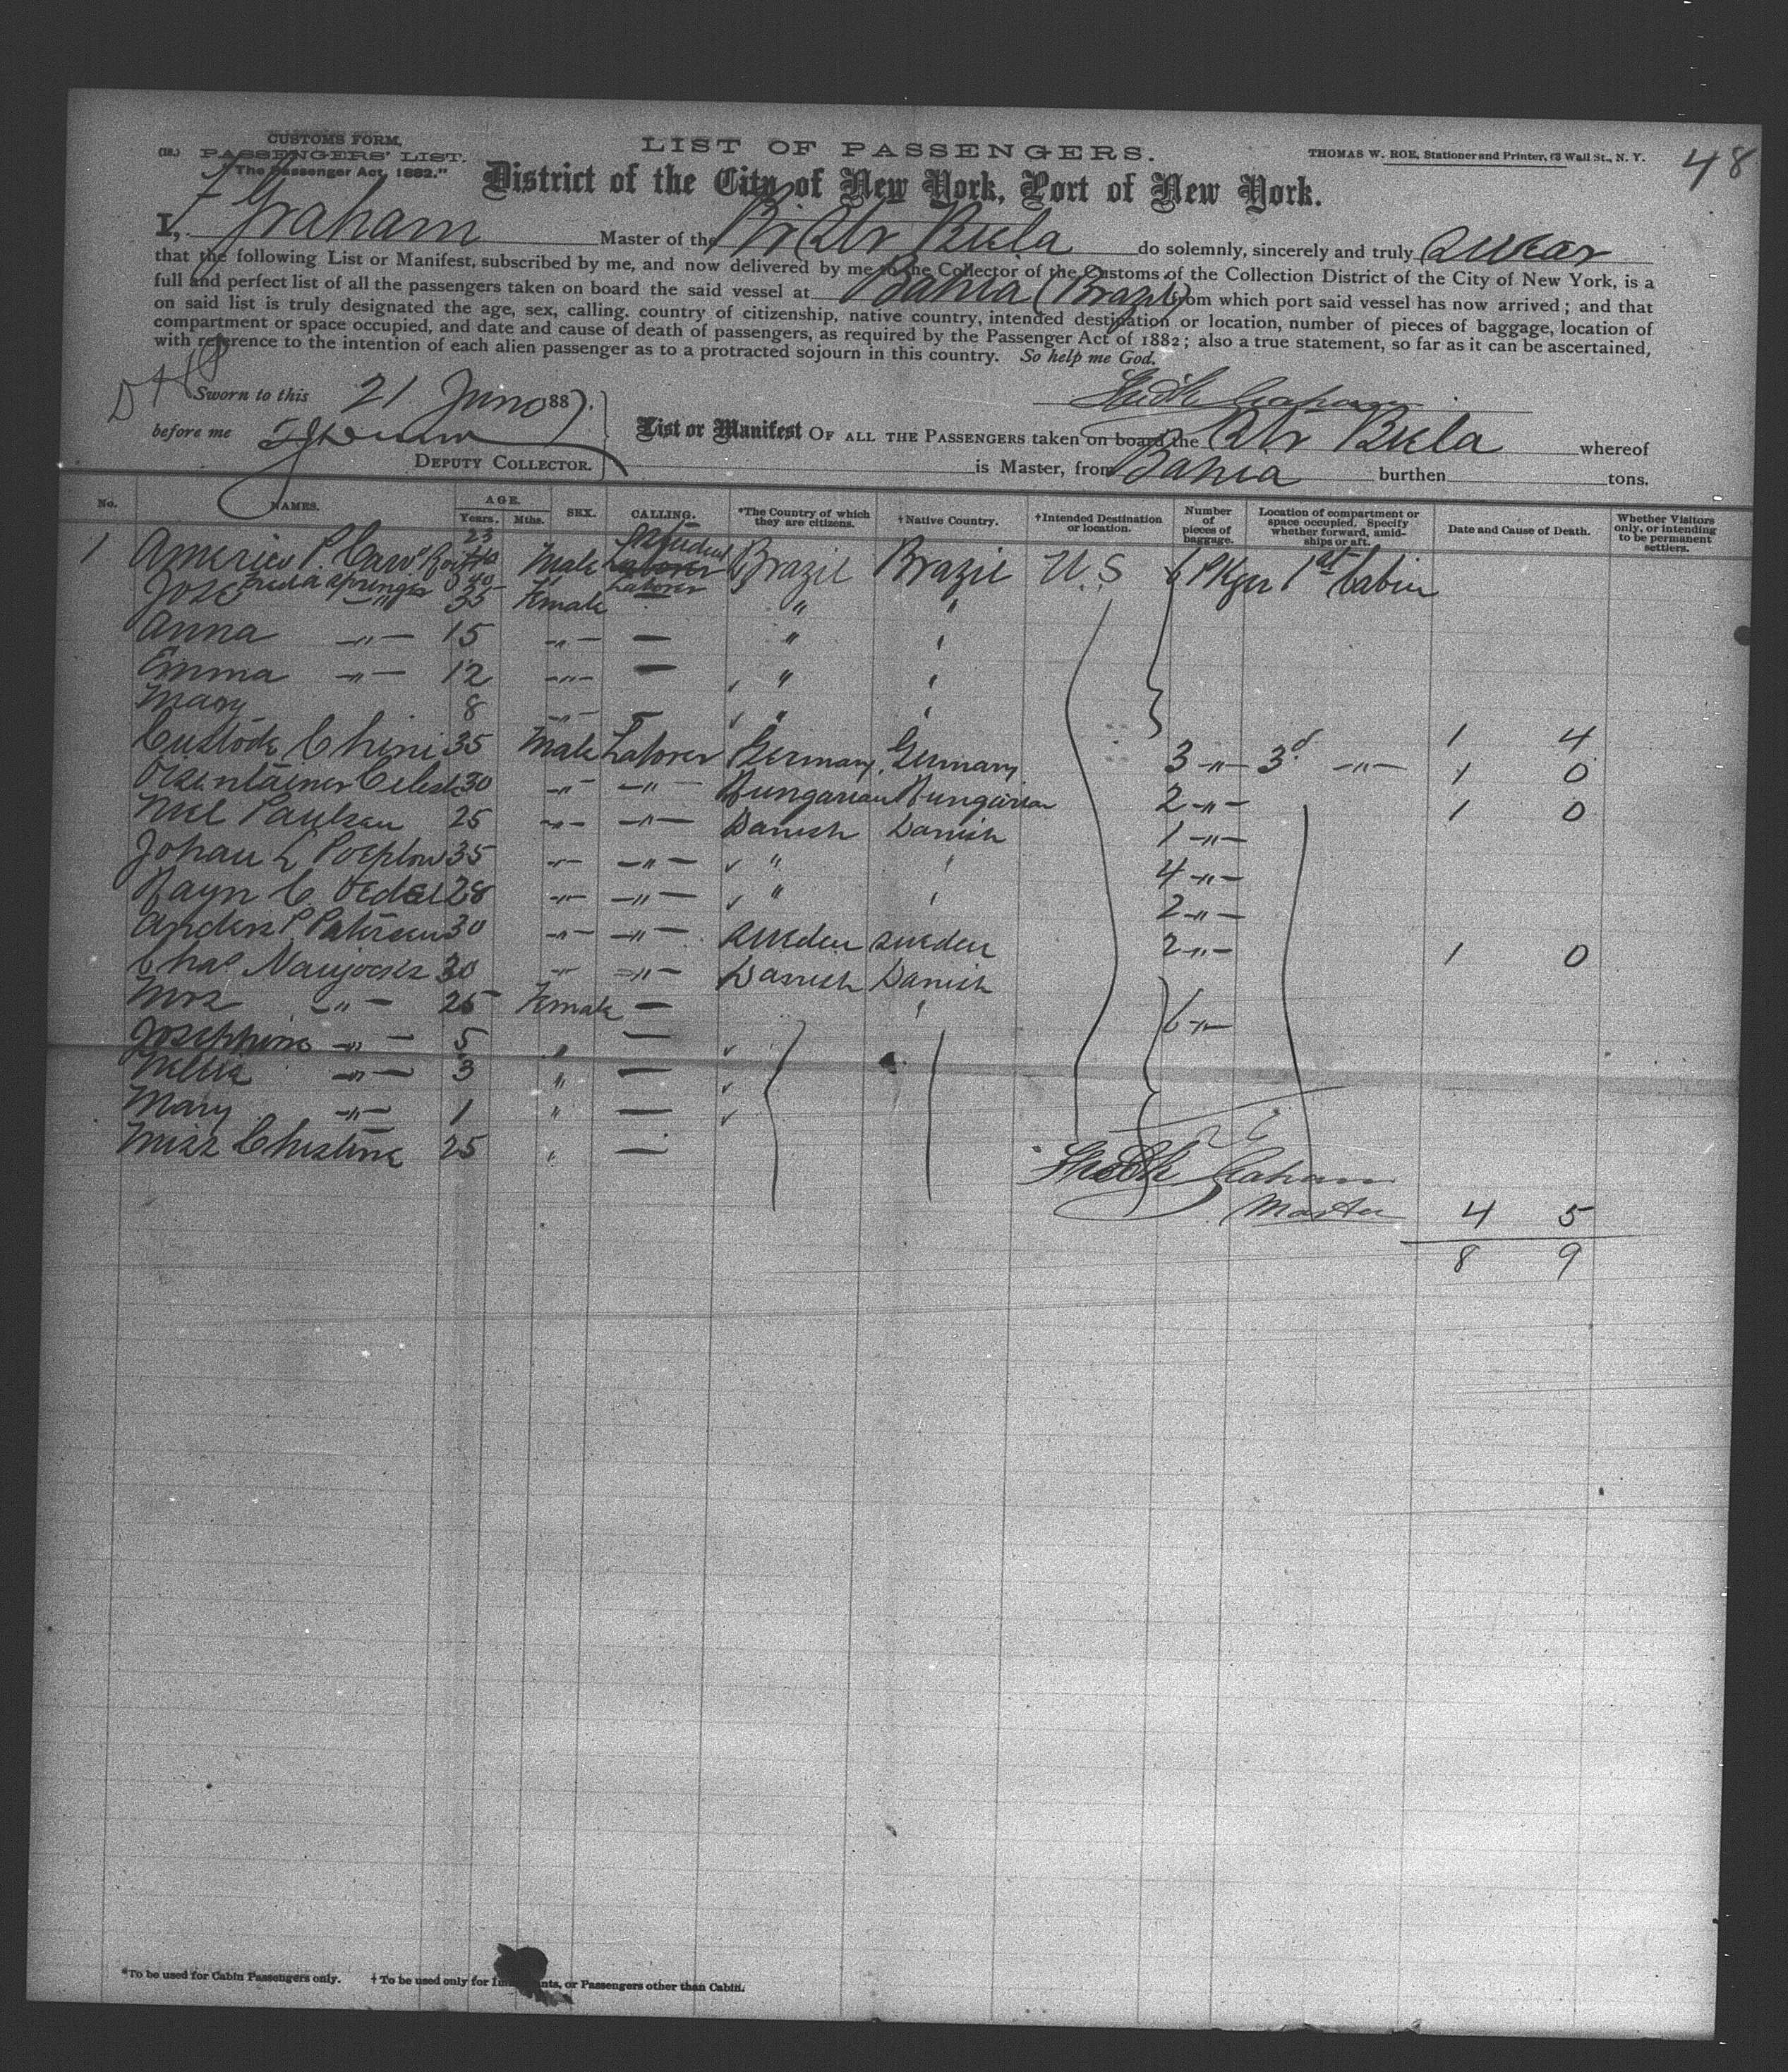 48
CUSTOMS FORM,
(18.) PASSENGERS' LIST.
"The Passenger Act, 1882."
LIST OF PASSENGERS.
THOMAS W. ROE, Stationer and Printer, 63 Wall St., N. Y.
District of the City of New York, Port of New York.
I, F Graham Master of the Br Str Biela do solemnly, sincerely and truly swear
that the following List or Manifest, subscribed by me, and now delivered by me to the Collector of the Customs of the Collection District of the City of New York, is a
full and perfect list of all the passengers taken on board the said vessel at Bahia (Brazil) from which port said vessel has now arrived; and that
on said list is truly designated the age, sex, calling, country of citizenship, native country, intended destination or location, number of pieces of baggage, location of
compartment or space occupied, and date and cause of death of passengers, as required by the Passenger Act of 1882; also a true statement, so far as it can be ascertained,
with reference to the intention of each alien passenger as to a protracted sojourn in this country. So help me God.
Sworn to this 21 June 1887.
before me
Graham
DEPUTY COLLECTOR.
List or Manifest OF ALL THE PASSENGERS taken on board the Str Biela whereof
is Master, from Bahia burthen tons.
No. NAMES. AGE. Years. Mths. SEX. CALLING. *The Country of which they are citizens. †Native Country. †Intended Destination or location. Number of pieces of baggage. Location of compartment or space occupied. Specify whether forward, amidships or aft. Date and Cause of Death. Whether Visitors only, or intending to be permanent settlers.
1 Americo P. 23 Male Student Brazil Brazil U.S 6 Pkgs 1st Cabin
Springer 40 Laborer
Jose " 35 Female " "
Anna " 15 " — " "
Emma " 12 " — " "
Mary 8 " — " "
Custode Chini 35 Male Laborer Germany Germany 3 " 3d " 1 4
30 " " Hungarian Hungarian 2 " 1 0
Niel Paulsen 25 " " Danish Danish 1 " 1 0
Johan L Poeplow 35 " " " " 4 "
28 " " " " 2 "
Anders P Petersen 30 " " Sweden Sweden 2 " 1 0
Chas Naujocks 30 " " Danish Danish
Mrs " 25 Female — " 6 "
Josephine " 5 " —
3 " —
Mary " 1 " —
Miss Christine 25 " —
Graham
Master
4 5
8 9
*To be used for Cabin Passengers only. † To be used only for Immigrants, or Passengers other than Cabin.